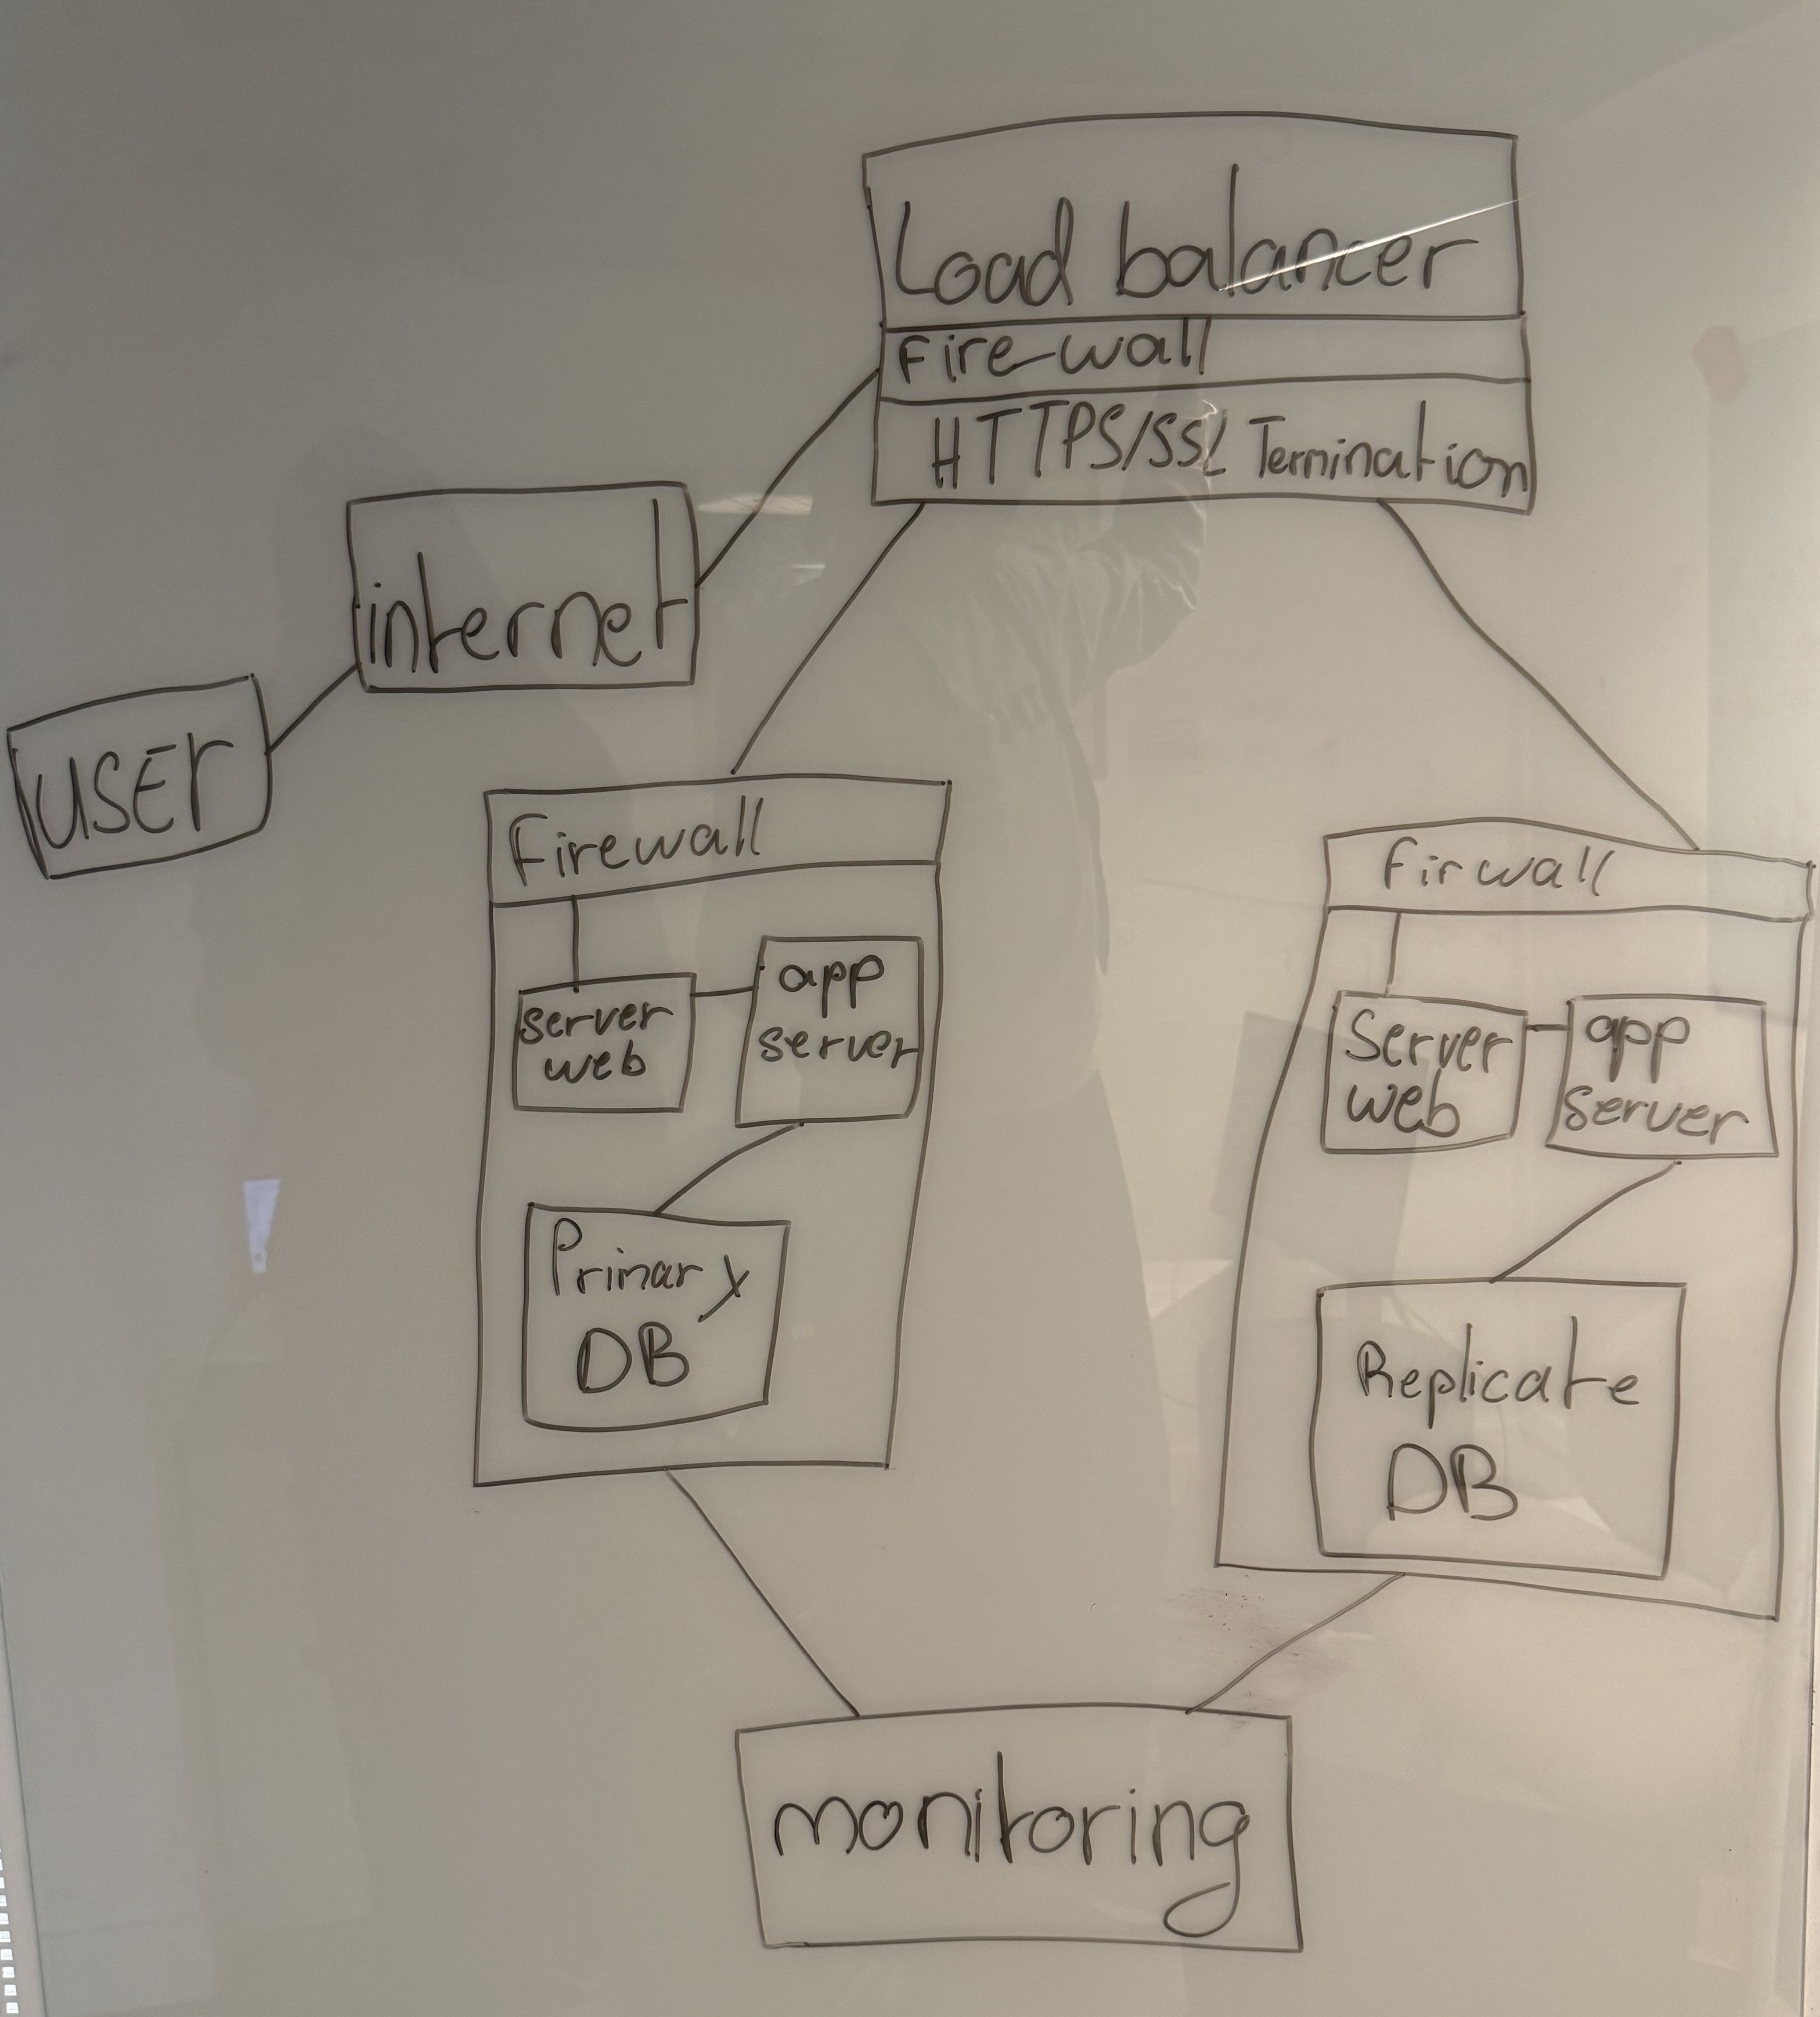 Load balancer
Fire-wall
HTTPS/SSL Termination
internet
USEr
Firewall
server
web
app
server
Primary
DB
Firwall
Server
web
app
server
Replicate
DB
monitoring